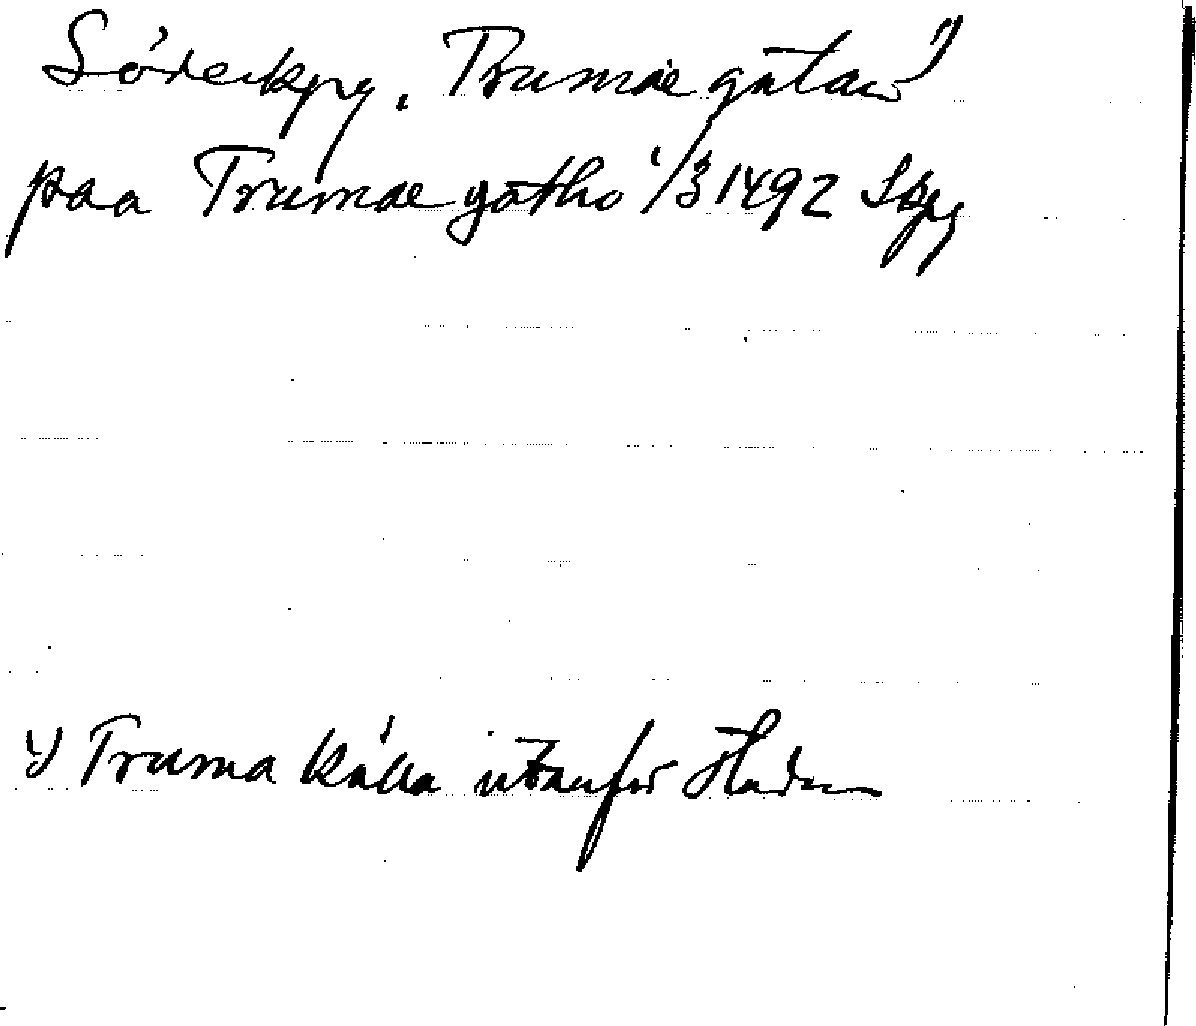 Söderkpg. Trumæ gatan 1)
paa Trumæ gatho 1/3 1492 Skpg
1) Truma källa utanför staden